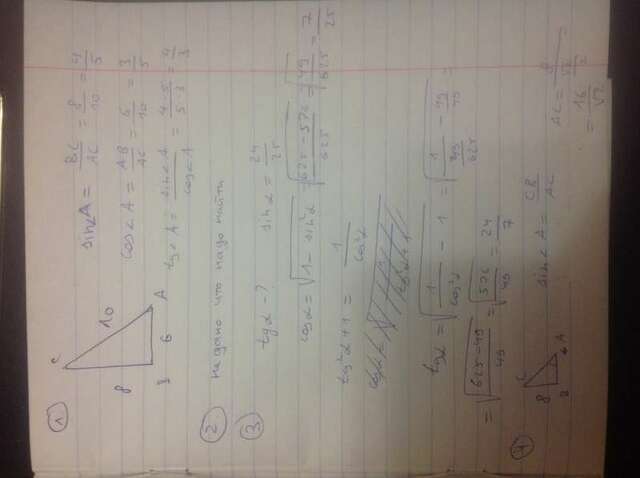 1
C
10
8
B 6 A
sin∠A = BC/AC = 8/10 = 4/5
cos∠A = AB/AC = 6/10 = 3/5
tg∠A = sin∠A/cos∠A = 4·5/5·3 = 4/3
2 не дано что надо найти
3 tgα - ? sinα = 24/25
cosα = √(1 - sin²α) = √((625-576)/625) = √(49/625) = 7/25
tg²α + 1 = 1/cos²α
tgα = √(1/cos²α - 1) = √(1/(49/625) - 49/49) =
= √((625-49)/49) = √(576/49) = 24/7
4
C
8
B 6 A
sin∠A = CB/AC
= 16/√2